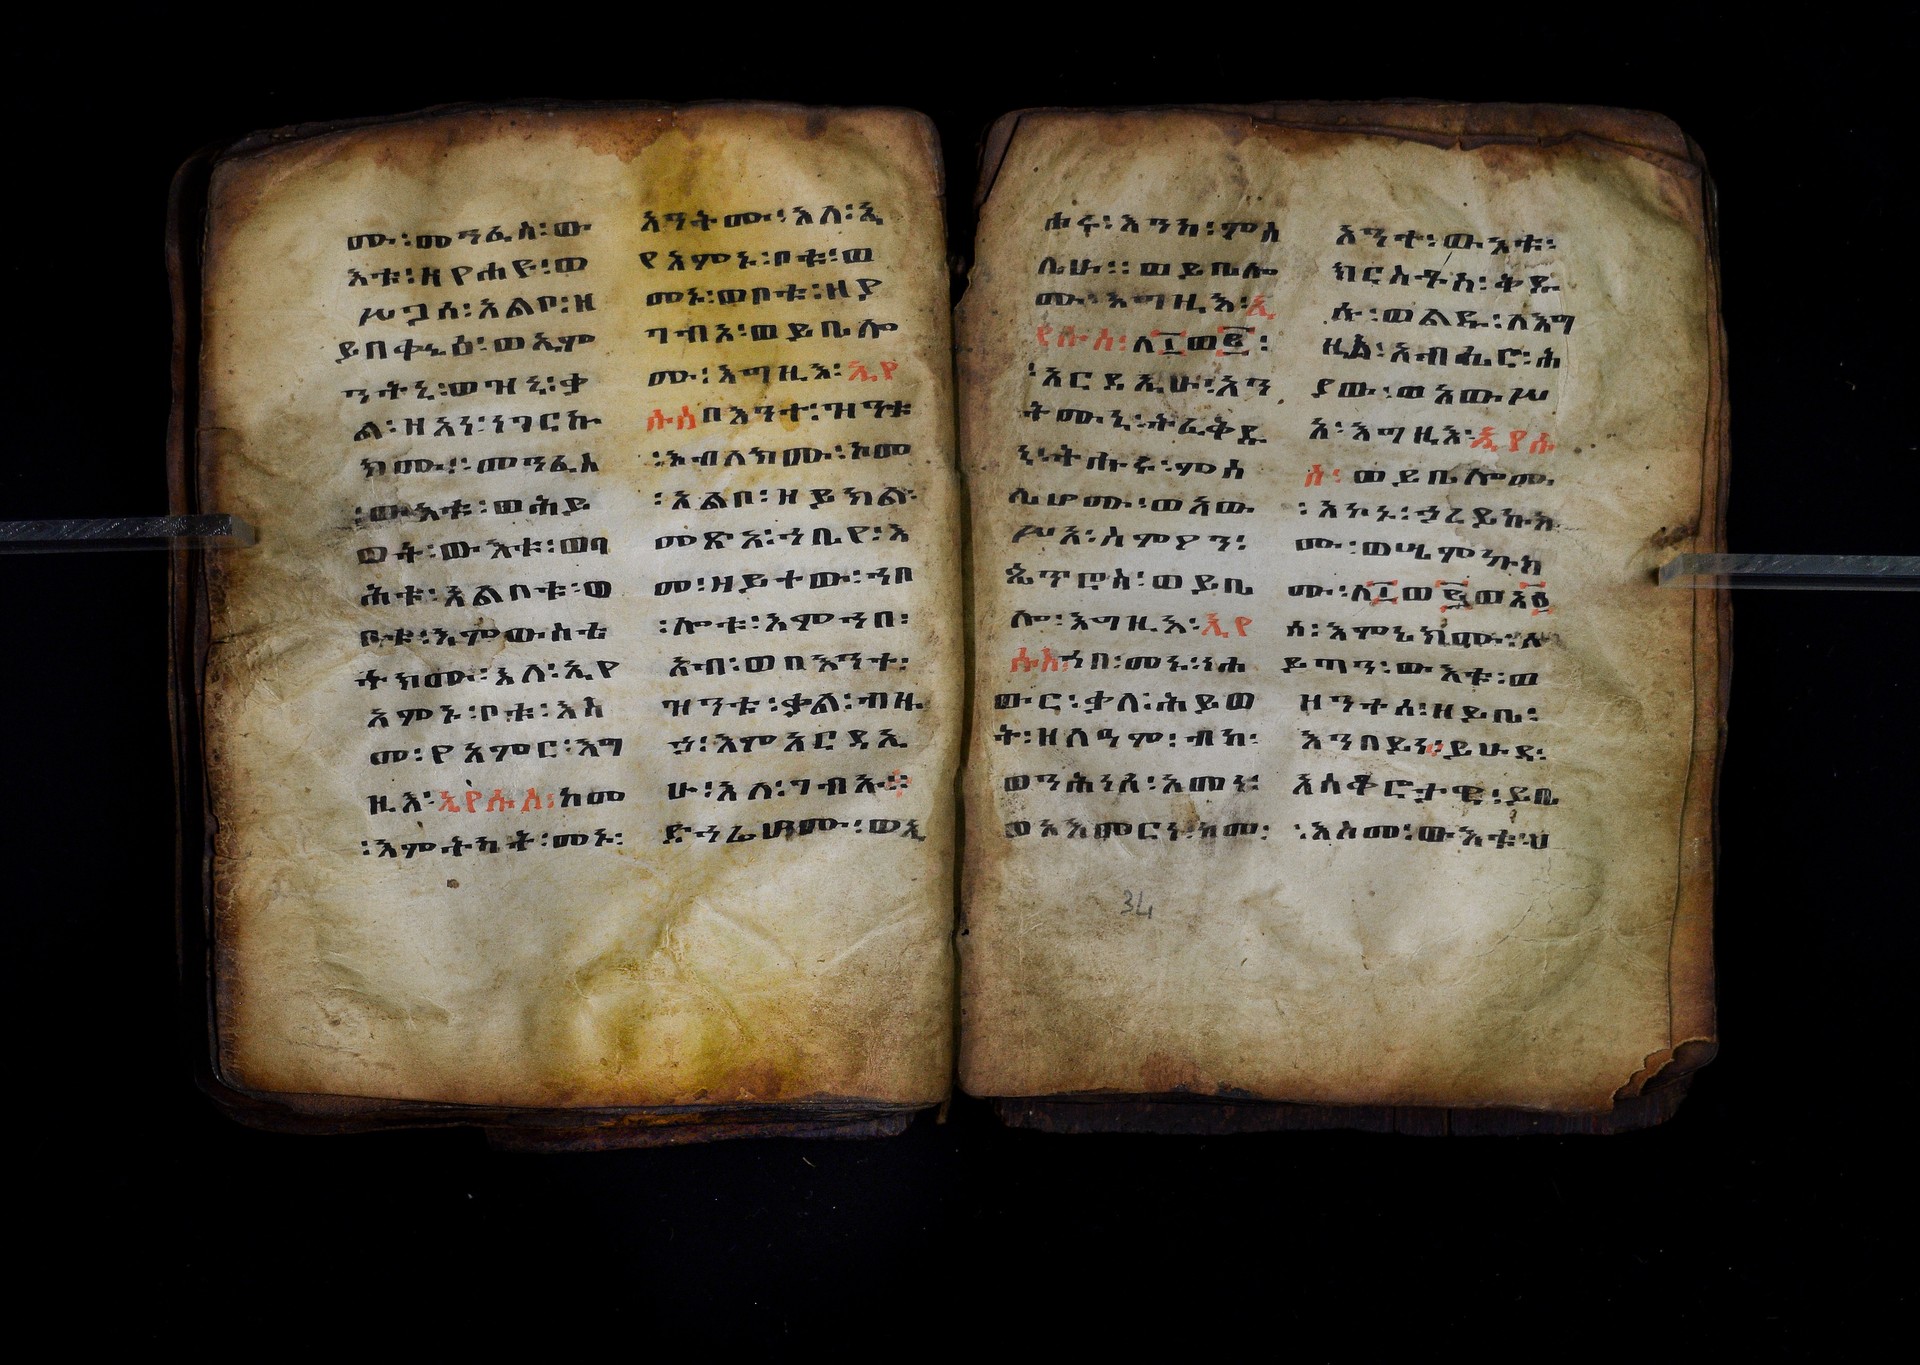 ሙ፡መንፈስ፡ው
እቱ፡ዘየሐዩ፡ወ
ሥጋሰ፡አልቦ፡ዘ
ይበቀኒዕ፡ወኢም
ንትኒ፡ወዝኒ፡ቃ
ል፡ዘአነ፡ነገርኩ
ክሙ፡፡መንፈስ
፡ውእቱ፡ወሕይ
ወት፡ውእቱ፡ወባ
ሕቱ፡አልቦቱ፡ወ
ቦቱ፡እምውስቴ
ትክሙ፡እለ፡ኢየ
አምኑ፡ቦቱ፡እስ
መ፡የአምር፡እግ
ዚእ፡ኢየሱስ፡ከመ
፡እምትካት፡መኑ፡
እንትሙ፡እለ፡ኢ
የአምኑ፡ቦቱ፡ወ
መኑ፡ወቦቱ፡ዘያ
ገብእ፡ወይቤሎ
ሙ፡እግዚእ፡ኢየ
ሱስ፡በእንተ፡ዝንቱ
፡እብለክሙ፡ከመ
፡አልቦ፡ዘይክል፡
መጽአ፡ኀቤየ፡እ
መ፡ዘይተው፡ኀበ
፡ሎቱ፡እምኀበ፡
አብ፡ወበእንተ፡
ዝንቱ፡ቃል፡ብዙ
ኃ፡እምአርዳኢ
ሁ፡እለ፡ገብኡ፡፡
ድኅሬሆሙ፡ወኢ
ሐሩ፡እንከ፡ምስ
ሌሁ፡፡ወይቤሎ
ሙ፡እግዚእ፡ኢ
የሱስ፡ለ፲ወ፪፡
፡አርዳኢሁ፡አን
ትሙኒ፡ትፈቅዱ
ኒ፡ትሑሩ፡ምስ
ሌሆሙ፡ወአው
ሥአ፡ስምዖን፡
ጴጥሮስ፡ወይቤ
ሎ፡እግዚእ፡ኢየ
ሱስ፡ኀበ፡መኑ፡ነሐ
ውር፡ቃለ፡ሕይወ
ት፡ዘለዓም፡ብከ፡
ወንሕነሰ፡አመነ፡
ወአእመርነ፡ከመ፡
አንተ፡ውእቱ፡
ክርስቶስ፡ቅዱ
ሱ፡ወልዱ፡ለእግ
ዚአ፡አብሔር፡ሕ
ያው፡ወአውሥ
አ፡እግዚእ፡ኢየሱ
ስ፡ወይቤሎሙ
፡አኮኑ፡ኃረይኩክ
ሙ፡ወሤምኩክ
ሙ፡ለ፲ወ፪ወአ፩
ሰ፡እምኔክሙ፡ሰ
ይጣን፡ውእቱ፡ወ
ዘንተሰ፡ዘይቤ፡
እንበይነ፡ይሁዳ፡
አስቆሮታዊ፡ይቤ
፡እስመ፡ውእቱ፡ህ
34